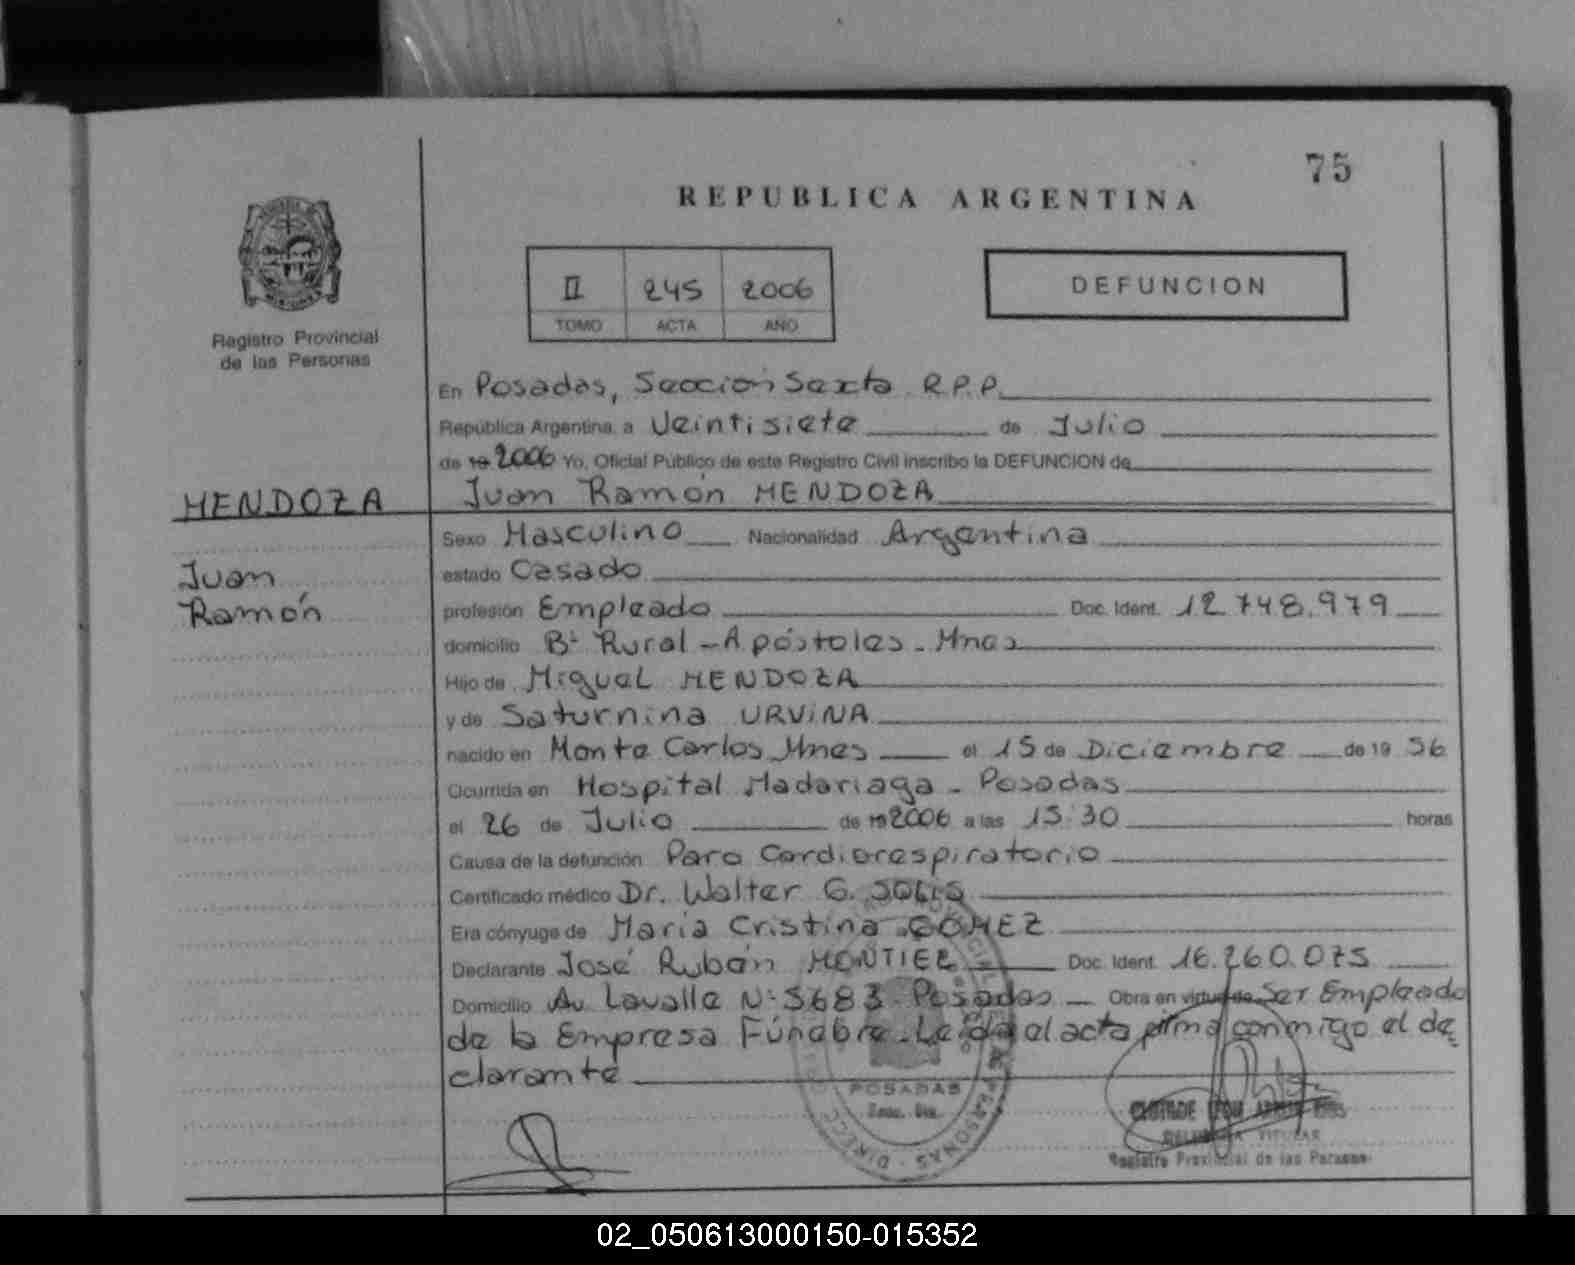 75
REPUBLICA ARGENTINA
II 245 2006
TOMO ACTA AÑO
DEFUNCION
Registro Provincial
de las Personas
En Posadas, Sección Sexta R.P.P.
República Argentina, a Veintisiete de Julio
de 19 2006 Yo, Oficial Público de este Registro Civil inscribo la DEFUNCION de
MENDOZA Juan Ramón MENDOZA
Sexo Masculino Nacionalidad Argentina
Juan estado Casado
Ramón profesión Empleado Doc. Ident. 12.748.979
domicilio Bº Rural - Apóstoles - Mnes
Hijo de Miguel MENDOZA
y de Saturnina URVINA
nacido en Monte Carlos, Mnes el 15 de Diciembre de 19 56
Ocurrida en Hospital Madariaga - Posadas
el 26 de Julio de 19 2006 a las 15:30 horas
Causa de la defunción Paro Cardiorespiratorio
Certificado médico Dr. Walter G. SOLIS
Era cónyuge de María Cristina GOMEZ
Declarante José Rubén MONTIEL Doc. Ident. 16.260.075
Domicilio Av. Lavalle Nº 5683 Posadas Obra en virtud de Ser Empleado
de la Empresa Fúnebre. Leída el acta firma conmigo el de
clarante
POSADAS
TITULAR
Registro Provincial de las Personas
02_050613000150-015352